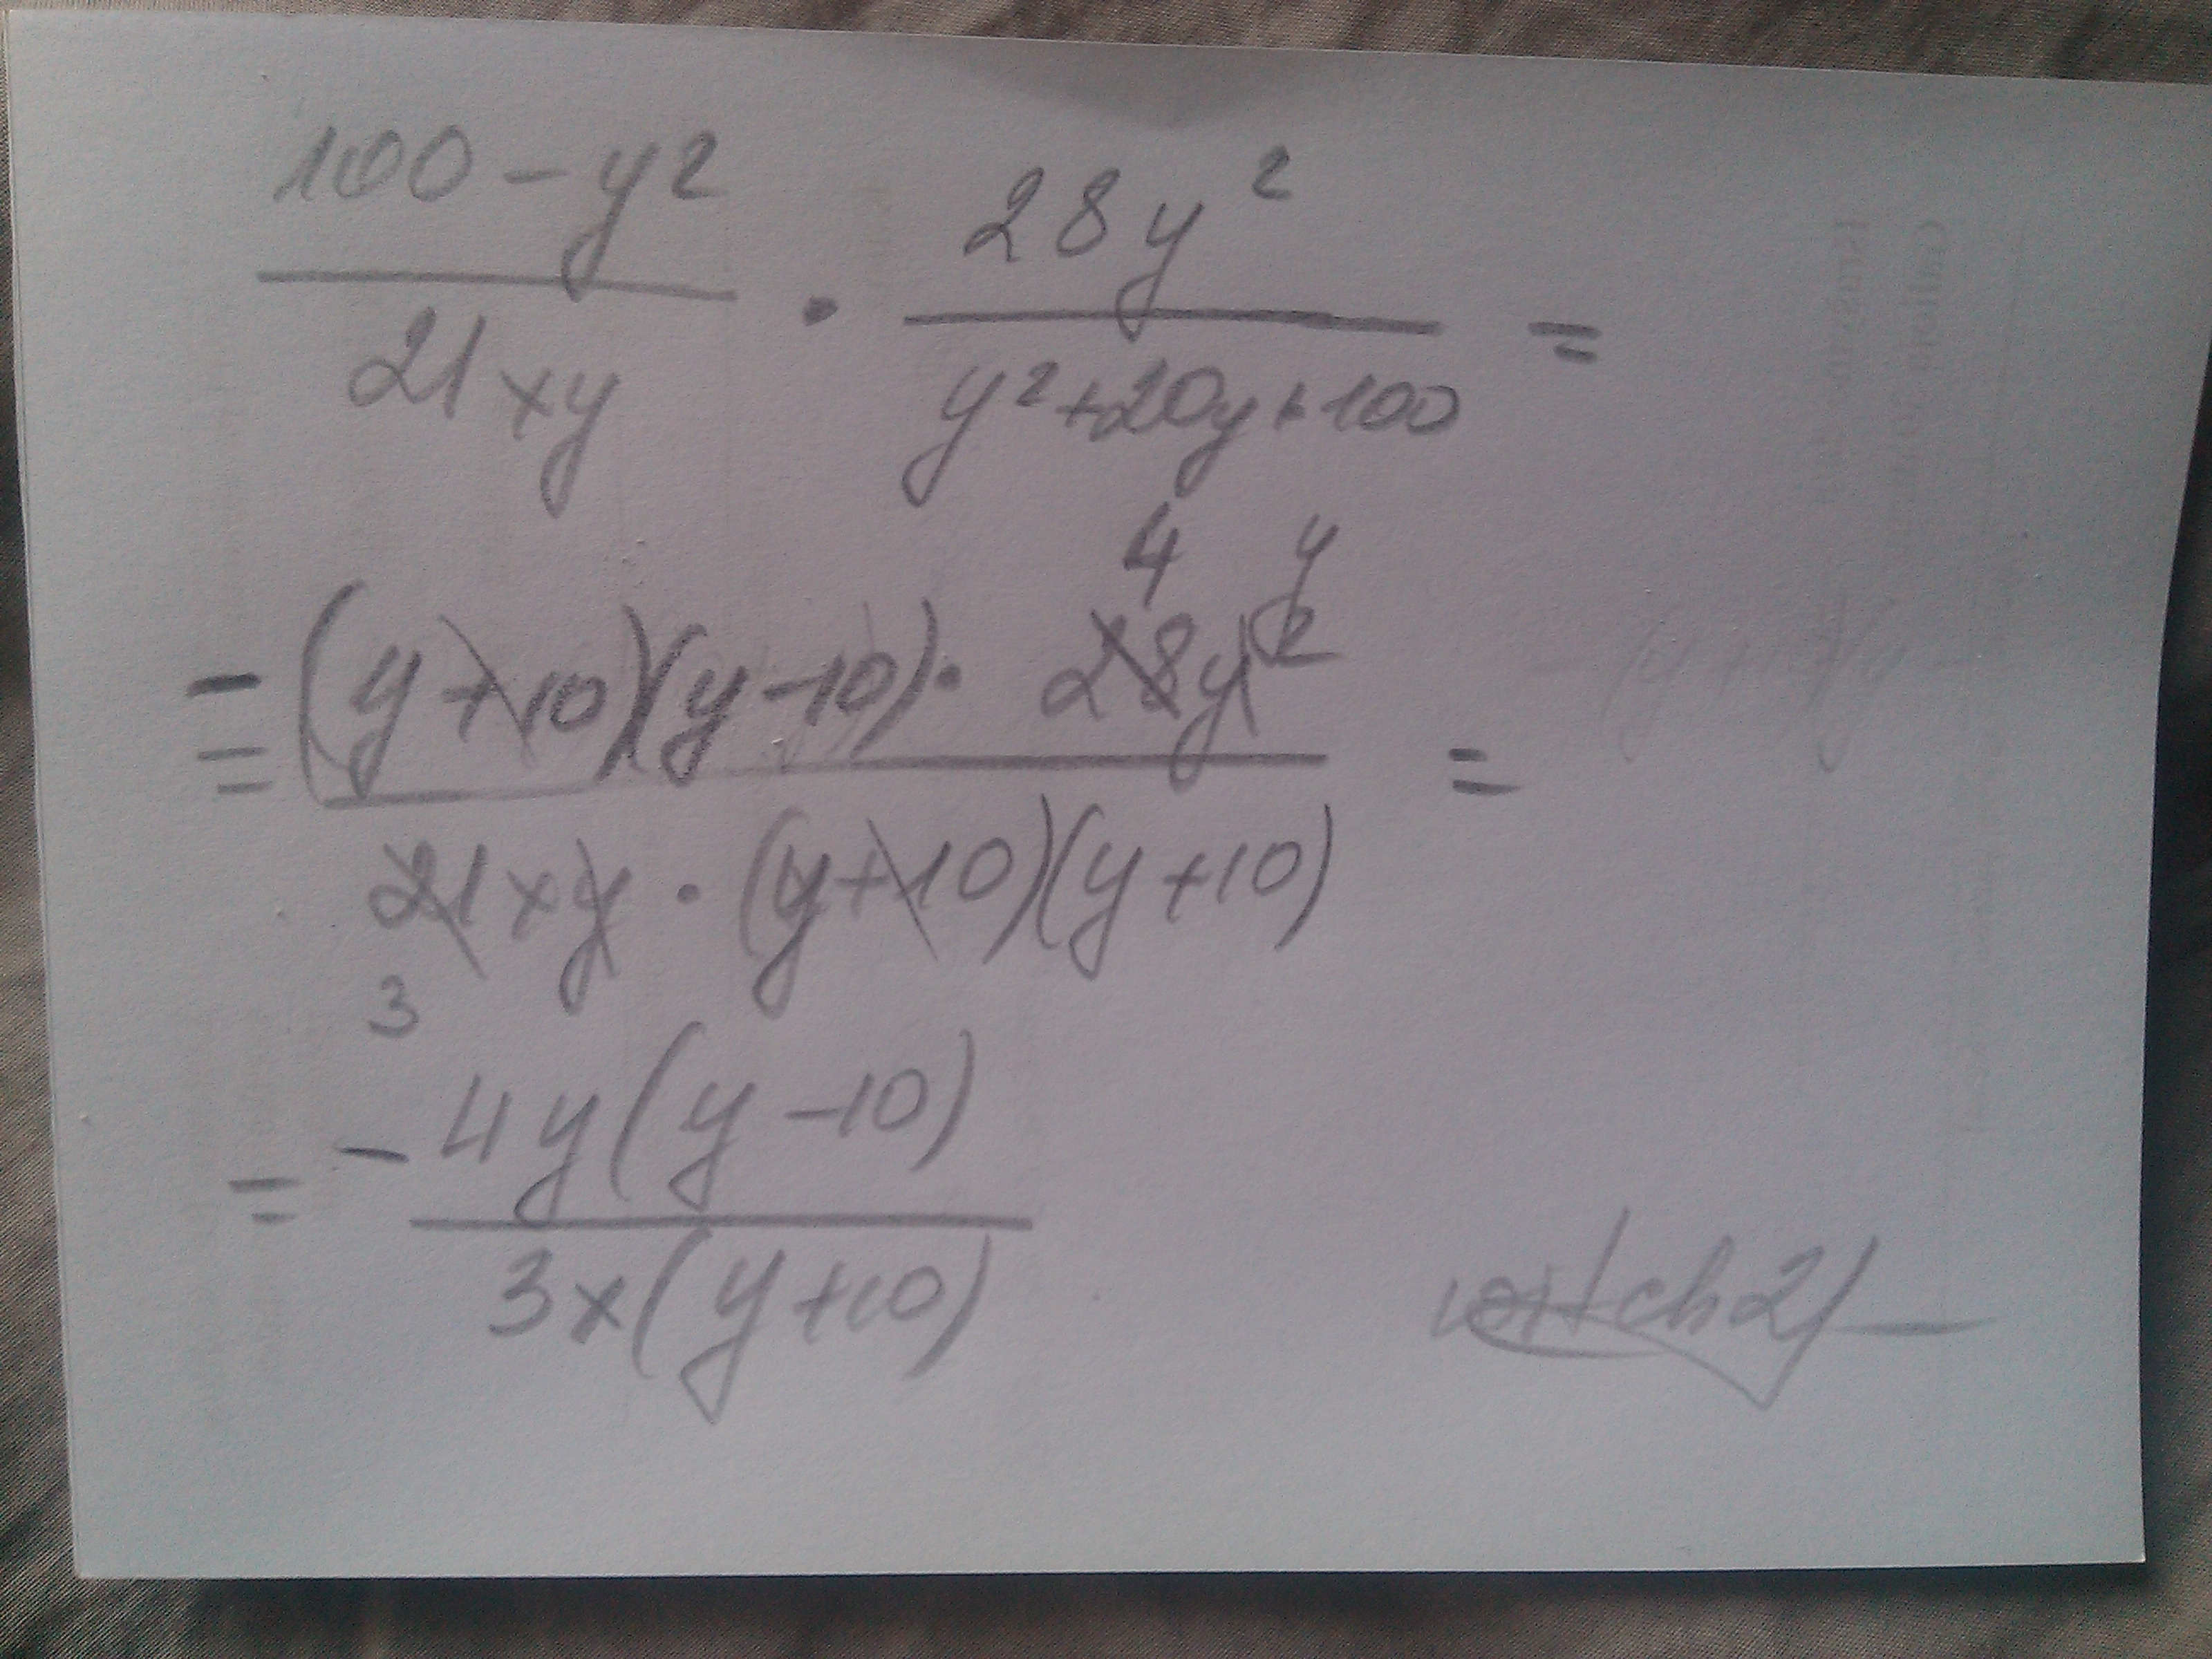 100 - y² / 21xy · 28y² / y²+20y+100 =
= -(y+10)(y-10) · 28y² / 21xy · (y+10)(y+10) =
4 y
3
= -4y(y-10) / 3x(y+10)